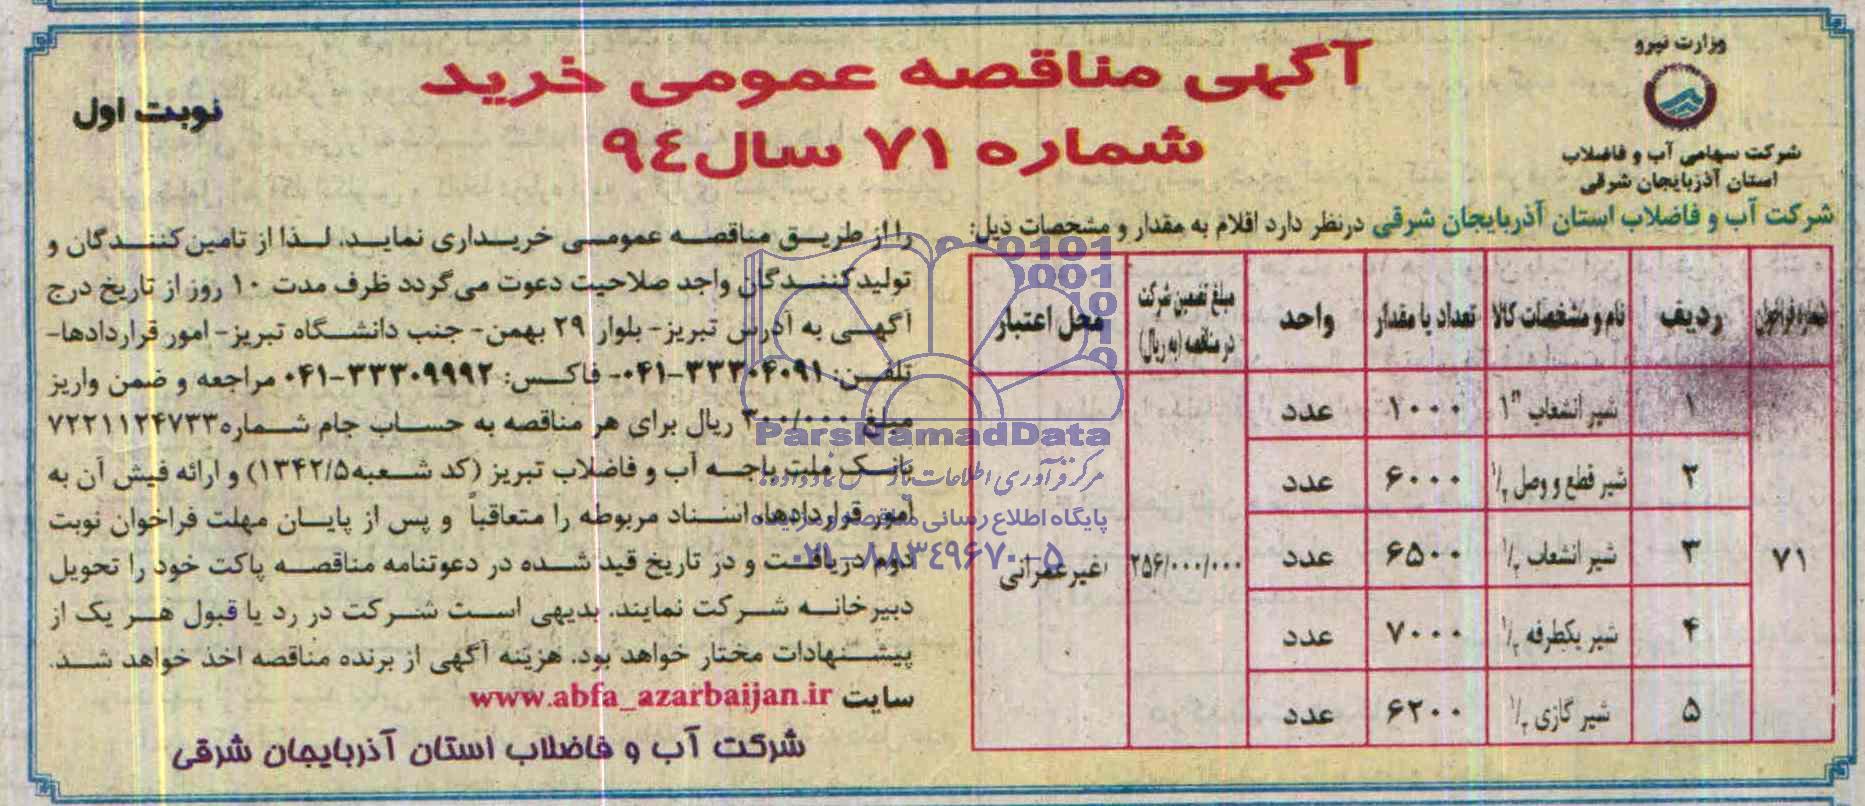 وزارت نیرو
شرکت سهامی آب و فاضلاب
استان آذربایجان شرقی
آگهی مناقصه عمومی خرید
شماره ۷۱ سال ۹۴
نوبت اول
شرکت آب و فاضلاب استان آذربایجان شرقی درنظر دارد اقلام به مقدار و مشخصات ذیل:
شماره فراخوان ردیف نام و مشخصات کالا تعداد یا مقدار واحد مبلغ تضمین شرکت در مناقصه (به ریال) محل اعتبار
۷۱ ۱ شیر انشعاب ۱" ۱۰۰۰ عدد ۲۵۶/۰۰۰/۰۰۰ غیرعمرانی
۲ شیر قطع و وصل ۱/۲ ۶۰۰۰ عدد
۳ شیر انشعاب ۱/۲ ۶۵۰۰ عدد
۴ شیر یکطرفه ۱/۲ ۷۰۰۰ عدد
۵ شیر گازی ۱/۲ ۶۲۰۰ عدد
را از طریق مناقصه عمومی خریداری نماید. لذا از تامین‌کنندگان و
تولیدکنندگان واجد صلاحیت دعوت می‌گردد ظرف مدت ۱۰ روز از تاریخ درج
آگهی به آدرس تبریز- بلوار ۲۹ بهمن- جنب دانشگاه تبریز- امور قراردادها-
تلفن: ۳۳۳۰۴۰۹۱-۰۴۱- فاکس: ۳۳۳۰۹۹۹۲-۰۴۱ مراجعه و ضمن واریز
مبلغ ۳۰۰/۰۰۰ ریال برای هر مناقصه به حساب جام شماره ۷۲۲۱۱۲۴۷۳۳
بانک ملت باجه آب و فاضلاب تبریز (کد شعبه ۱۳۴۲/۵) و ارائه فیش آن به
امور قراردادها، اسناد مربوطه را متعاقباً و پس از پایان مهلت فراخوان نوبت
دوم دریافت و در تاریخ قید شده در دعوتنامه مناقصه پاکت خود را تحویل
دبیرخانه شرکت نمایند. بدیهی است شرکت در رد یا قبول هر یک از
پیشنهادات مختار خواهد بود. هزینه آگهی از برنده مناقصه اخذ خواهد شد.
سایت www.abfa_azarbaijan.ir
شرکت آب و فاضلاب استان آذربایجان شرقی
ParsNamadData
پایگاه اطلاع رسانی مناقصه و مزایده
۰۲۱-۸۸۳۴۹۶۷۰-۵